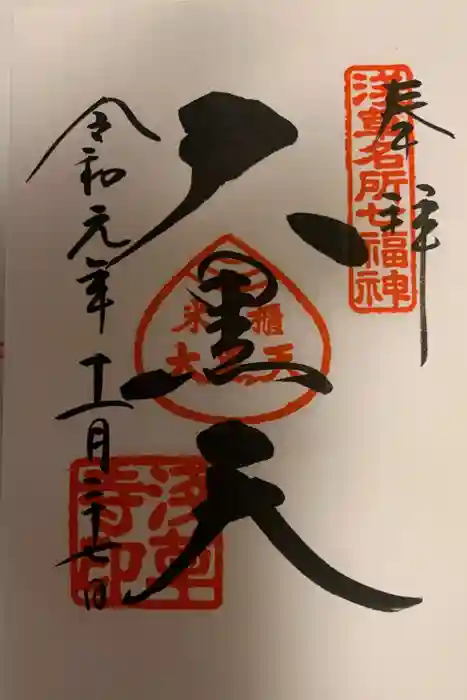 奉拝
浅草名所七福神
大黒天
米櫃
大黒天
浅草寺印
令和元年十一月二十七日